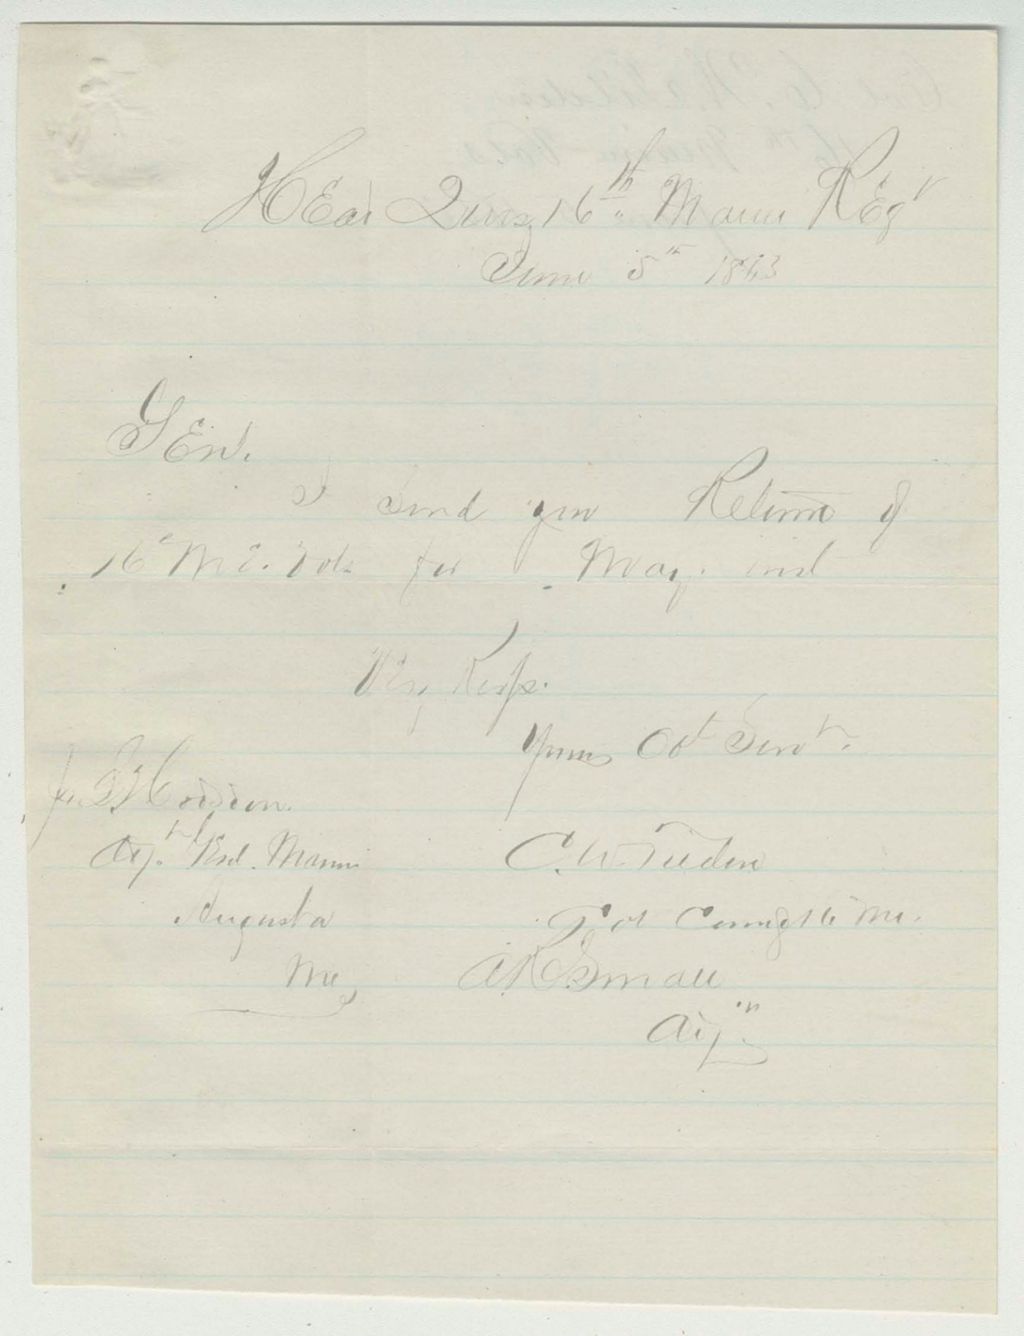 Head Qurs 16th Maine Regt
June 5th 1863
Genl.
I send you Return of
16" M E. Vols for May. inst
Very Resp.
Yours Obt Servt.
J. L Hodsdon.
Adj. Genl. Maine
Augusta
Me,
C. W. Tilden
Col Comdg 16 Me.
A R Small
Adjt